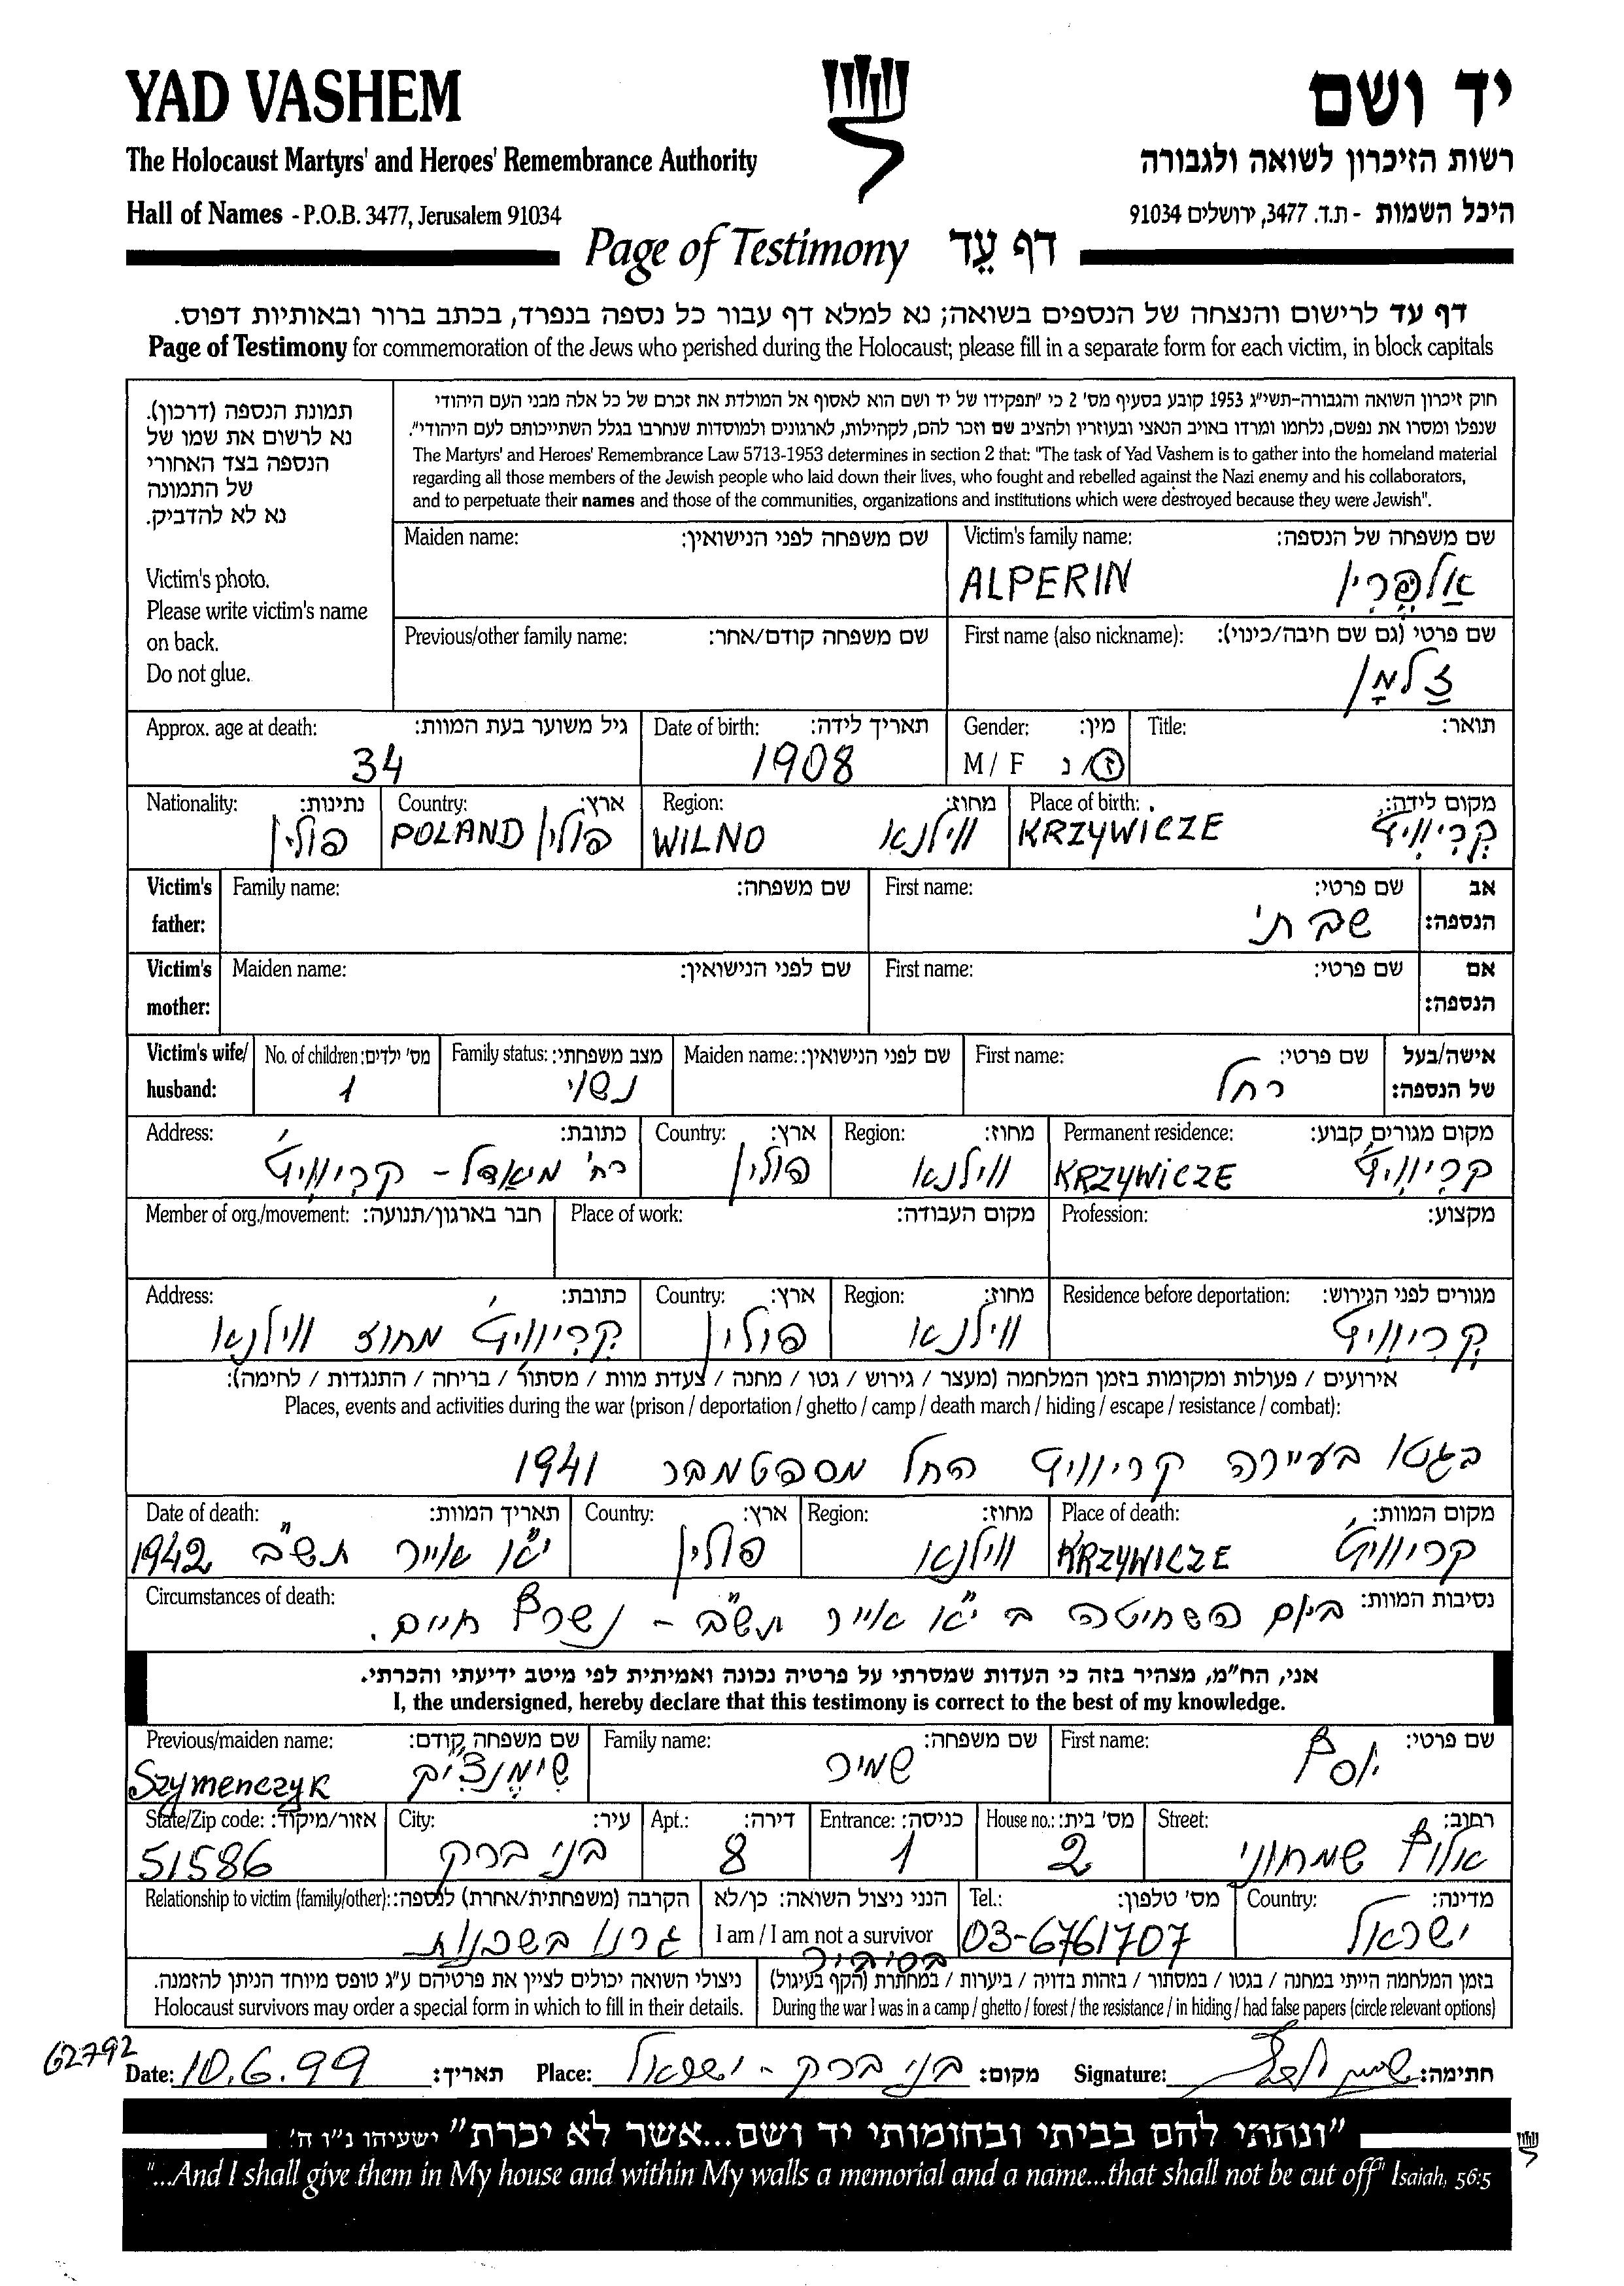 YAD VASHEM יד ושם
The Holocaust Martyrs' and Heroes' Remembrance Authority רשות הזיכרון לשואה ולגבורה
Hall of Names - P.O.B. 3477, Jerusalem 91034 היכל השמות - ת.ד. 3477, ירושלים 91034
Page of Testimony דף עֵד
דף עד לרישום והנצחה של הנספים בשואה; נא למלא דף עבור כל נספה בנפרד, בכתב ברור ובאותיות דפוס.
Page of Testimony for commemoration of the Jews who perished during the Holocaust; please fill in a separate form for each victim, in block capitals
תמונת הנספה (דרכון).
נא לרשום את שמו של
הנספה בצד האחורי
של התמונה
נא לא להדביק.
Victim's photo.
Please write victim's name
on back.
Do not glue.
חוק זיכרון השואה והגבורה-תשי"ג 1953 קובע בסעיף מס' 2 כי "תפקידו של יד ושם הוא לאסוף אל המולדת את זכרם של כל אלה מבני העם היהודי
שנפלו ומסרו את נפשם, נלחמו ומרדו באויב הנאצי ובעוזריו ולהציב שם וזכר להם, לקהילות, לארגונים ולמוסדות שנחרבו בגלל השתייכותם לעם היהודי".
The Martyrs' and Heroes' Remembrance Law 5713-1953 determines in section 2 that: "The task of Yad Vashem is to gather into the homeland material
regarding all those members of the Jewish people who laid down their lives, who fought and rebelled against the Nazi enemy and his collaborators,
and to perpetuate their names and those of the communities, organizations and institutions which were destroyed because they were Jewish".
Maiden name: שם משפחה לפני הנישואין: Victim's family name: שם משפחה של הנספה:
ALPERIN אַלפֶּרִין
Previous/other family name: שם משפחה קודם/אחר: First name (also nickname): שם פרטי (גם שם חיבה/כינוי):
זַלמָן
Approx. age at death: גיל משוער בעת המוות: Date of birth: תאריך לידה: Gender: מין: Title: תואר:
34 1908 M / F ז/נ
Nationality: נתינות: Country: ארץ: Region: מחוז: Place of birth: מקום לידה:
פולין POLAND פולין WILNO ווילנא KRZYWICZE קְרִיוִויץ'
Victim's father: Family name: שם משפחה: First name: שם פרטי: אב הנספה:
שבתי
Victim's mother: Maiden name: שם לפני הנישואין: First name: שם פרטי: אם הנספה:
Victim's wife/ husband: No. of children: מס' ילדים: Family status: מצב משפחתי: Maiden name: שם לפני הנישואין: First name: שם פרטי: אישה/בעל של הנספה:
1 נשוי רחל
Address: כתובת: Country: ארץ: Region: מחוז: Permanent residence: מקום מגורים קבוע:
רח' מיאַדל - קריוויץ' פולין ווילנא KRZYWICZE קריוויץ'
Member of org./movement: חבר בארגון/תנועה: Place of work: מקום העבודה: Profession: מקצוע:
Address: כתובת: Country: ארץ: Region: מחוז: Residence before deportation: מגורים לפני הגירוש:
קריוויץ' מחוז ווילנא פולין ווילנא קריוויץ
אירועים / פעולות ומקומות בזמן המלחמה (מעצר / גירוש / גטו / מחנה / צעדת מוות / מסתור / בריחה / התנגדות / לחימה):
Places, events and activities during the war (prison / deportation / ghetto / camp / death march / hiding / escape / resistance / combat):
בגטו בעיירה קריוויץ החל מספטמבר 1941
Date of death: תאריך המוות: Country: ארץ: Region: מחוז: Place of death: מקום המוות:
1942 י"א אייר תש"ב פולין ווילנא KRZYWICZE קריוויץ'
Circumstances of death: נסיבות המוות:
ביום השחיטה ב י"א אייר תש"ב - נשרף חיים.
אני, הח"מ, מצהיר בזה כי העדות שמסרתי על פרטיה נכונה ואמיתית לפי מיטב ידיעתי והכרתי.
I, the undersigned, hereby declare that this testimony is correct to the best of my knowledge.
Previous/maiden name: שם משפחה קודם: Family name: שם משפחה: First name: שם פרטי:
Szymenczyk שִימֶנצִ'יק שמיר יוסף
State/Zip code: אזור/מיקוד: City: עיר: Apt.: דירה: Entrance: כניסה: House no.: מס' בית: Street: רחוב:
51586 בני ברק 8 1 2 אלוף שמחוני
Relationship to victim (family/other): הקרבה (משפחתית/אחרת) לנספה: הנני ניצול השואה: כן/לא Tel.: מס' טלפון: Country: מדינה:
גרנו בשכנות I am / I am not a survivor 03-6761707 ישראל
בסיביר
ניצולי השואה יכולים לציין את פרטיהם ע"ג טופס מיוחד הניתן להזמנה. בזמן המלחמה הייתי במחנה / בגטו / במסתור / בזהות בדויה / ביערות / במחתרת (הקף בעיגול)
Holocaust survivors may order a special form in which to fill in their details. During the war I was in a camp / ghetto / forest / the resistance / in hiding / had false papers (circle relevant options)
62792
Date: 10.6.99 תאריך: Place: בני ברק - ישראל מקום: Signature: חתימה:
"ונתתי להם בביתי ובחומותי יד ושם...אשר לא יכרת" ישעיהו נ"ו ה'
"...And I shall give them in My house and within My walls a memorial and a name...that shall not be cut off" Isaiah, 56:5